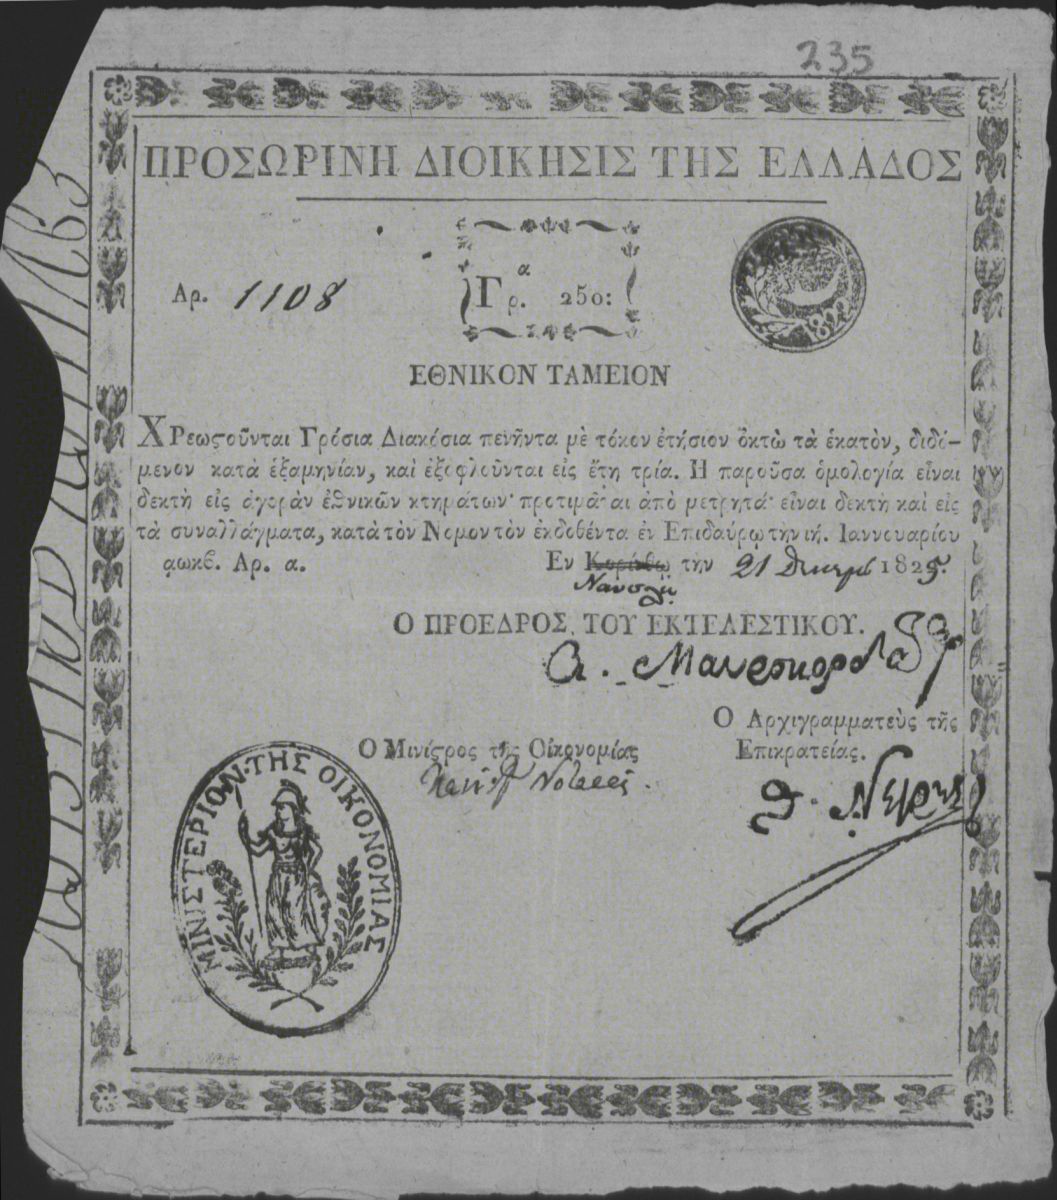 235
ΠΡΟΣΩΡΙΝΗ ΔΙΟΙΚΗΣΙΣ ΤΗΣ ΕΛΛΑΔΟΣ
Αρ. 1108
Γρ.α 250:
1822
ΕΘΝΙΚΟΝ ΤΑΜΕΙΟΝ
ΧΡεωϛοῦνται Γρόσια Διακόσια πενῆντα μὲ τόκον ἐτήσιον ὀκτὼ τὰ ἑκατὸν, διδό-
μενον κατὰ ἑξαμηνίαν, καὶ ἐξοφλοῦνται εἰς ἔτη τρία. Η παροῦσα ὁμολογία εἶναι
δεκτὴ εἰς ἀγορὰν ἐθνικῶν κτημάτων· προτιμᾶται ἀπὸ μετρητά· εἶναι δεκτὴ καὶ εἰς
τὰ συναλλάγματα, κατὰ τὸν Νομον τὸν ἐκδοθέντα ἐν Επιδαύρῳ τὴν ιή. Ιαννουαρίου
αωκϐ. Αρ. α. Εν Κορίνθῳ τὴν 21 Δεκεμβ 1825.
Ναυπλίῳ
Ο ΠΡΟΕΔΡΟΣ ΤΟΥ ΕΚΤΕΛΕΣΤΙΚΟΥ.
Α. Μαυροκορδάτος
Ο Αρχιγραμματεὺς τῆς
Επικρατείας.
Ο Μινίϛρος τῆς Οἰκονομίας
Πανοῦτ Νοταρᾶς
Θ. Νέγρης
ΜΙΝΙΣΤΕΡΙΟΝ·ΤΗΣ ΟΙΚΟΝΟΜΙΑΣ